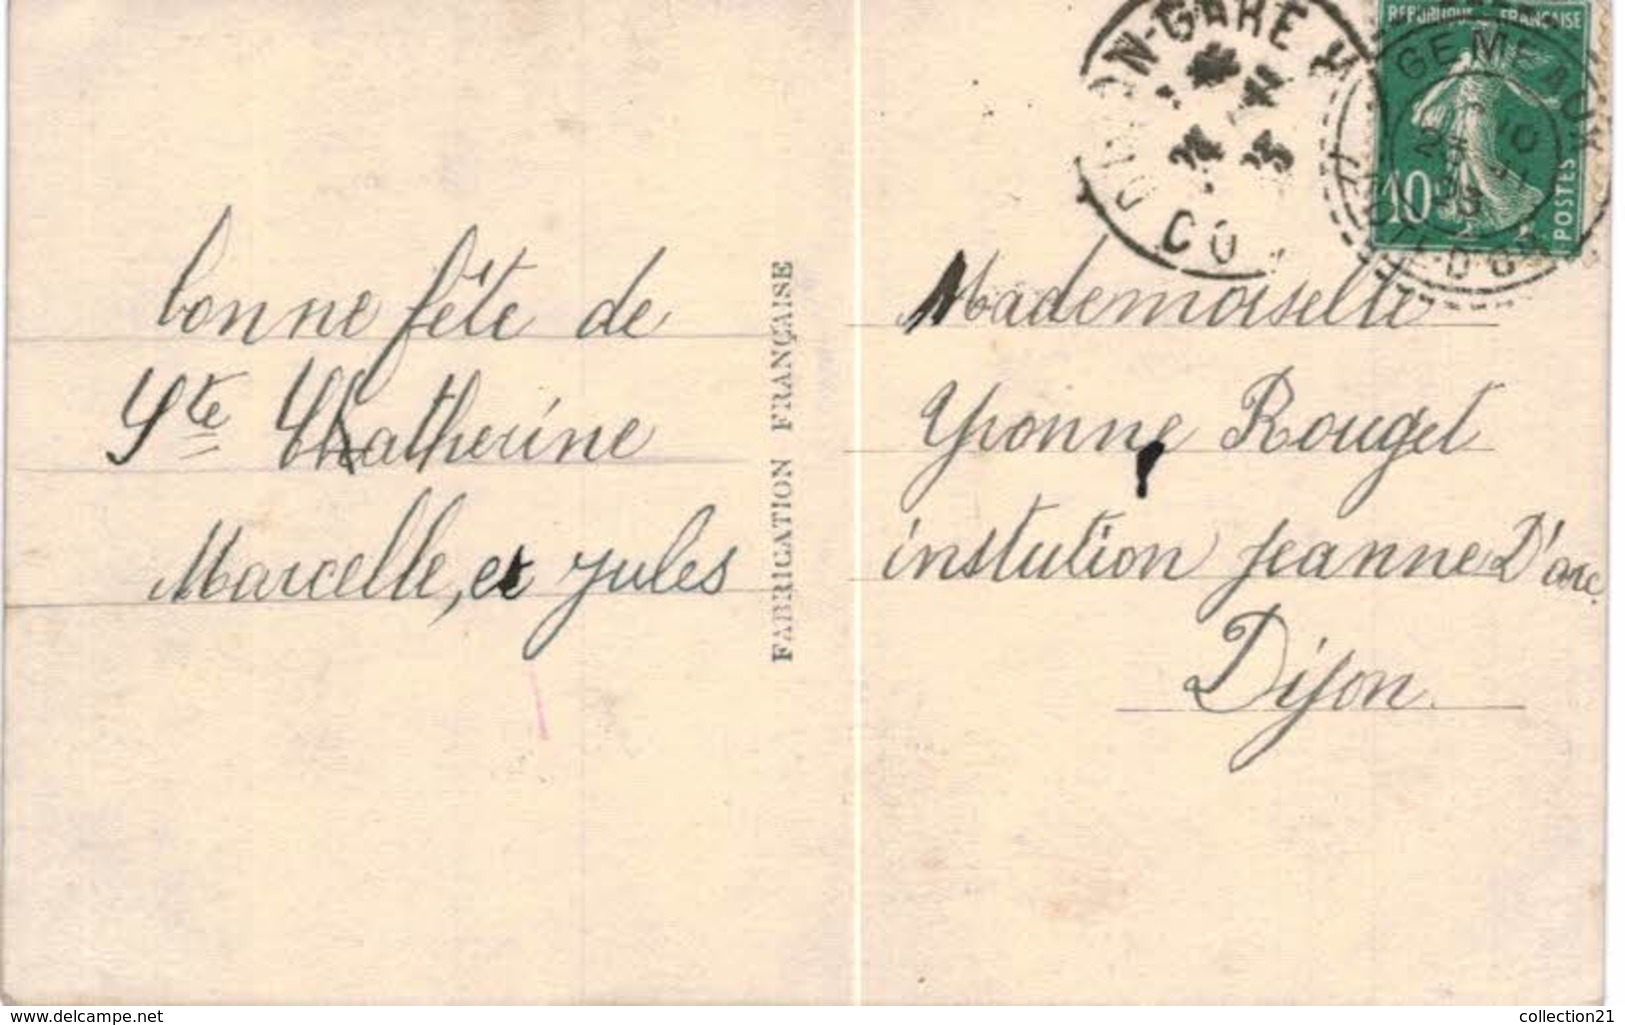 bonne fête de
Ste Chatherine
Marcelle, et Jules
FABRICATION FRANÇAISE
RÉPUBLIQUE FRANÇAISE
10
POSTES
GEMEAUX
CÔTE-D'OR
GARE
Mademoiselle
Yvonne Rouget
instution Jeanne D'arc
Dijon.
www.delcampe.net
collection21